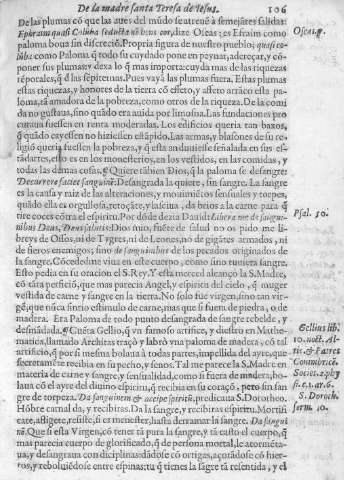 De la madre santa Teresa de Iesus. 106
De las plumas cõ que las aues del mũdo se atreuẽ à semejãtes salidas:
Ephraim quasi Colũba seducta nõ habẽs cor, dize Oseas: es Efraim como
Oseæ.7.
paloma boua sin discreciõ. Propria figura de nuestro pueblo; quasi co-
lũba: como Paloma q̃ todo su cuydado pone en peynar, adereçar, y cõ-
poner sus plumas y dexa lo q̃ mas importa cuyda mas de las riquezas
tẽporales, q̃ d las sẽpiternas. Pues vaya las plumas fuera. Estas plumas
estas riquezas, y honores de la tierra cõ effeto, y afeto arrãco esta pa-
loma, tã amadora de la pobreza, como otros de la riqueza. De la comi
da no gustaua, sino quãdo era auida por limosna. Las fundaciones pro
curaua fuessen en renta moderadas. Los edificios queria tan baxos,
q̃ quãdo cayessen no hiziessen estãpido. Las armas, y blasones de su re-
ligiõ queria fuessen la pobreza, y q̃ esta anduuiesse señalada en sus es-
tãdartes, esto es en los monesterios, en los vestidos, en las comidas, y
todas las demas cosas. Quiere tãbien Dios, q̃ la paloma se desangre:
Decurrere faciet sanguinẽ. Desangrada la quiere, sin sangre. La sangre
es la causa y raiz de las alteraciones, y mouimiẽtos sensuales y torpes,
quãdo ella es orgullosa, retoçãte, y lasciua, da brios a la carne para q̃
tire coces cõtra el espiritu. Por dõde dezia Dauid: Libera me de sangui-
Psal. 50.
nibus Deus, Deus salutis: Dios mio, fuẽte de salud no os pido me li-
breys de Ossos, ni de Tygres, ni de Leones, no de gigãtes armados, ni
de fieros enemigos; sino de sanguinibus de los pecados originados de
la sangre. Cõcededme viua en este cuerpo, como sino tuuiera sangre.
Esto pedia en su oracion el S. Rey. Y esta merced alcanço la S. Madre,
cõ rara perficiõ, que mas parecia Angel, y espiritu del cielo, q̃ muger
vestida de carne y sangre en la tierra. No solo fue virgen, sino tan vir-
gẽ, que nũca sintio estimulo de carne, mas que si fuera de piedra, o de
madera. Era Paloma de todo punto desangrada de sangre rebelde, y
desmãdada. Cuẽta Gellio, q̃ vn famoso artifice, y diestro en Mathe-
Gellius lib.
matica, llamado Architas traçò y labrò vna paloma de madera, cõ tal
10. noct. At-
artificio, q̃ por si mesma bolaua à todas partes, impellida del ayre, que
tic. & Patres
secretamẽte recibia en su pecho, y senos. Tal me parece la S. Madre en
Commẽt. cõ.
materia de carne y sangre, y sensualidad, como si fuera de madera, bo-
laua cõ el ayre del diuino espiritu, q̃ recibia en su coraçõ, pero sin san
gre de torpeza. Da sanguinem & accipe spiritũ, predicaua S. Dorotheo.
S. Doroth.
Hõbre carnal da, y recibiras. Da la sangre, y recibiras espiritu. Mortifi
serm. 10.
cate, afligete, resiste, si es menester, hasta derramar la sangre. Da sangui
nẽ. Que si esta Virgen, cõ tener tã pura la sangre, y tã casto el cuerpo, q̃
mas parecia cuerpo de glorificado, q̃ de persona mortal, le atormẽta-
ua, y desangraua con disciplinas, dãdose cõ ortigas, açotãdose cõ hier-
ros, y reboluiẽdose entre espinas: tu q̃ tienes la sãgre tã resentida, y el